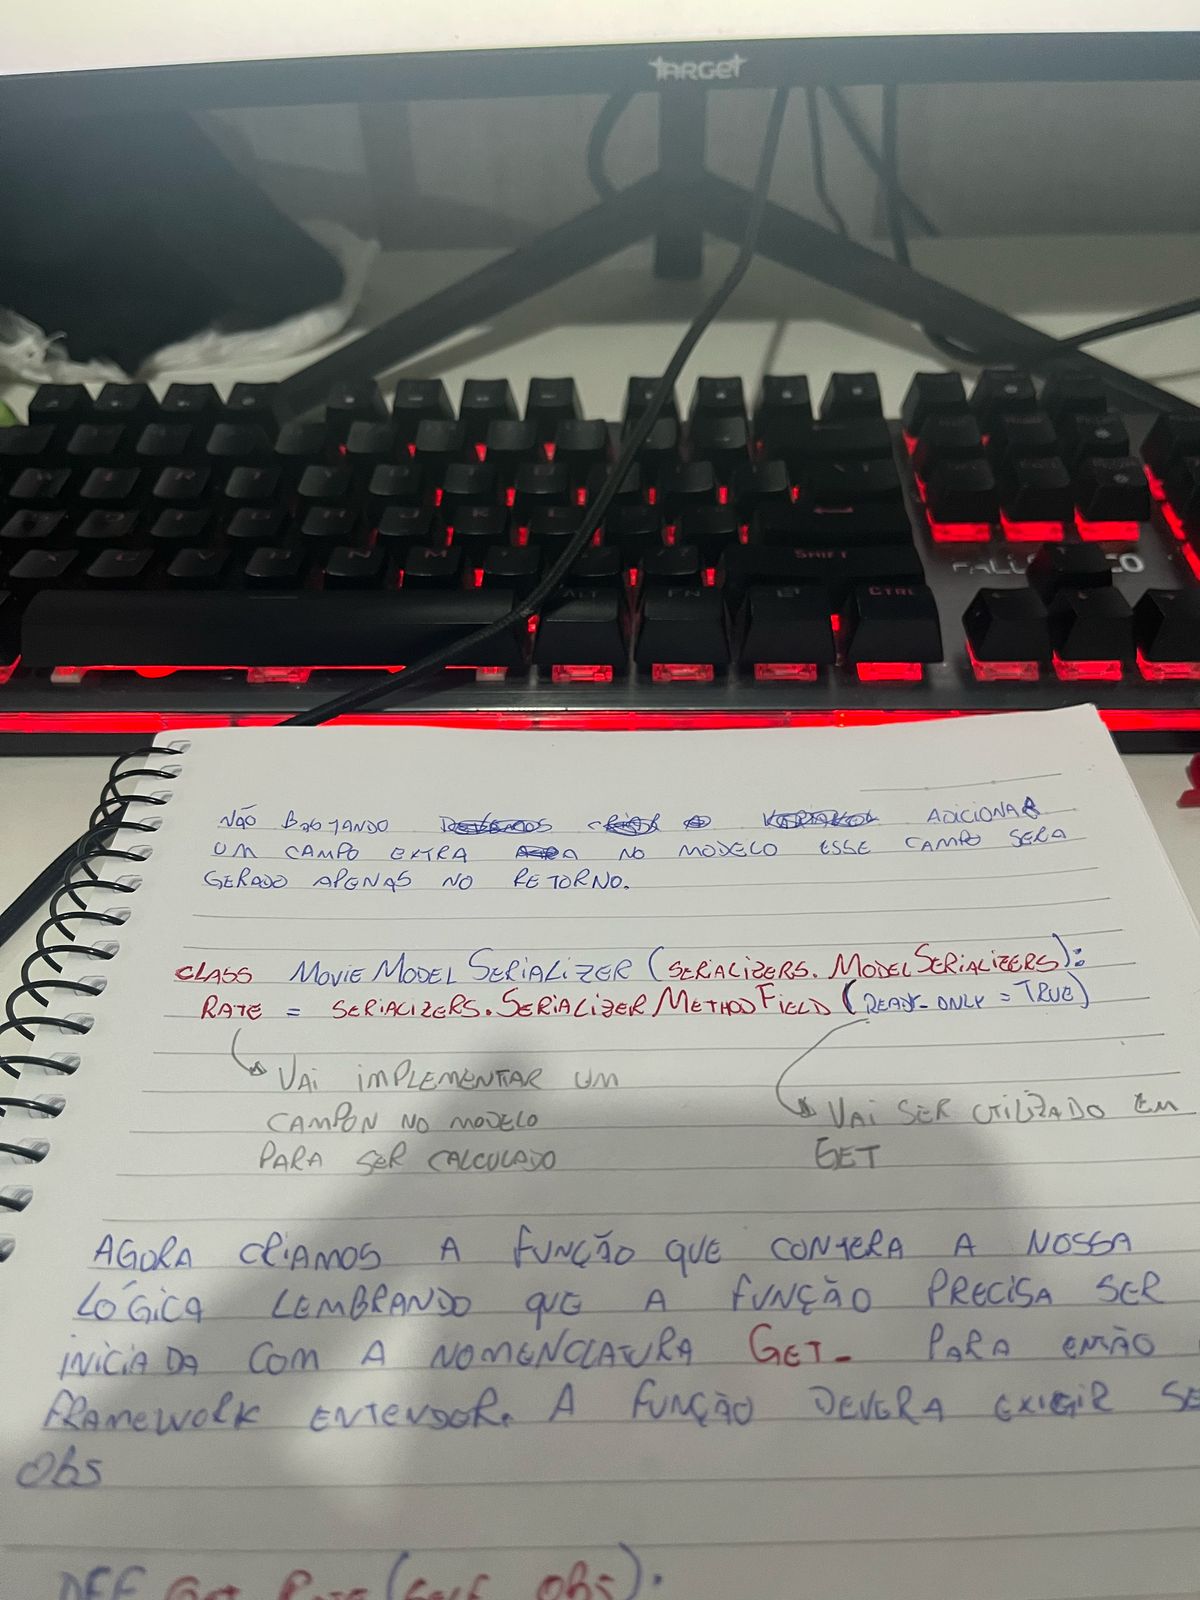 TARGET
SHIFT
ALT
FN
CTRL
NÃO BASTANDO ADICIONAR
UM CAMPO EXTRA NO MODELO ESSE CAMPO SERA
GERADO APENAS NO RETORNO.
CLASS MOVIEMODELSERIALIZER (SERIALIZERS.MODELSERIALIZERS):
RATE = SERIALIZERS.SERIALIZERMETHODFIELD (READ_ONLY = TRUE)
VAI IMPLEMENTAR UM
CAMPON NO MODELO
PARA SER CALCULADO
VAI SER UTILIZADO EM
GET
AGORA CRIAMOS A FUNÇÃO QUE CONTERA A NOSSA
LÓGICA LEMBRANDO QUE A FUNÇÃO PRECISA SER
INICIADA COM A NOMENCLATURA GET_ PARA ENTÃO
FRAMEWORK ENTENDER. A FUNÇÃO DEVERA EXIGIR SE
Obs
DEF GET_RATE (SELF, Obs):